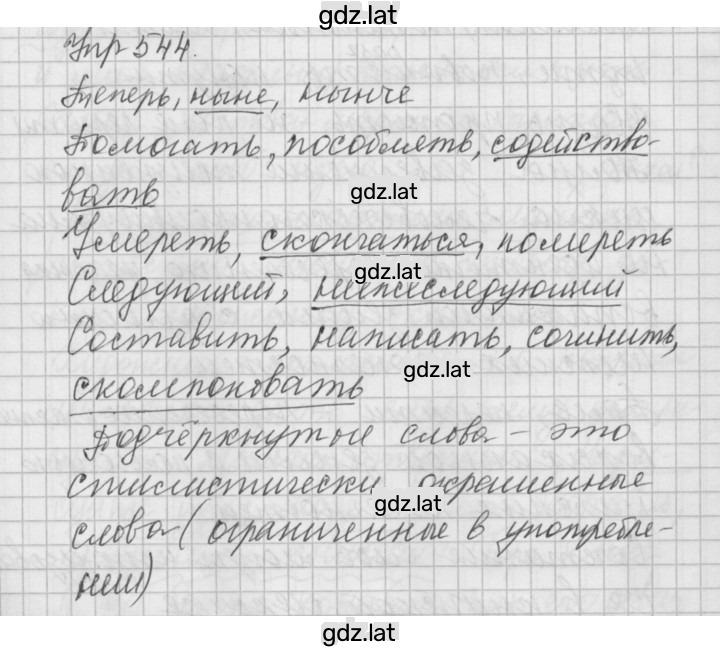 gdz.lat
Упр 544.
Теперь, ныне, нынче
Помогать, пособлять, содейство-
вать
gdz.lat
Умереть, скончаться, помереть
gdz.lat
Следующий, нижеследующий
Составить, написать, сочинить,
gdz.lat
скомпоновать
Подчёркнутые слова – это
стилистически окрашенные
gdz.lat
слова (ограниченные в употребле-
нии)
gdz.lat